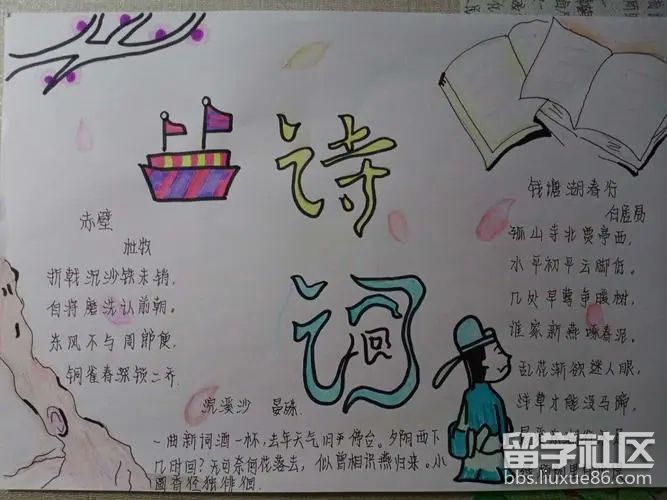 诗
词
赤壁
杜牧
折戟沉沙铁未销,
自将磨洗认前朝。
东风不与周郎便,
铜雀春深锁二乔.
钱塘湖春行
白居易
孤山寺北贾亭西,
水平初平云脚低。
几处早莺争暖树,
谁家新燕啄春泥。
乱花渐欲迷人眼,
浅草才能没马蹄,
浣溪沙 晏殊.
一曲新词酒一杯,去年天气旧亭台。夕阳西下
几时回?无可奈何花落去,似曾相识燕归来。小
园香径独徘徊.
留学社区
bbs.liuxue86.com